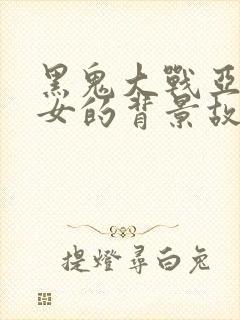 黑鬼大戰亞
女的背景故
提燈尋白兔